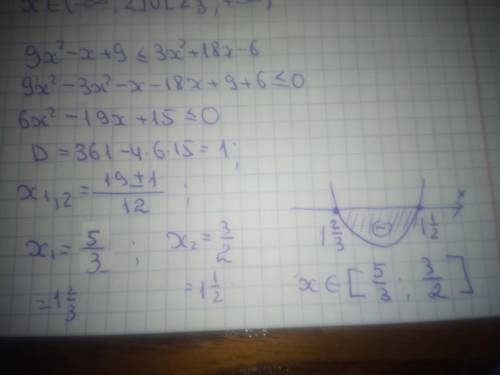 x ∈ (-∞; 2] ∪ [2
9x² - x + 9 ≤ 3x² + 18x - 6
9x² - 3x² - x - 18x + 9 + 6 ≤ 0
6x² - 19x + 15 ≤ 0
D = 361 - 4·6·15 = 1;
x₁,₂ = (19 ± 1)/12 ;
x₁ = 5/3 ; x₂ = 3/2
= 1 2/3 = 1 1/2
x
1 2/3 (-) 1 1/2
x ∈ [5/3 ; 3/2]